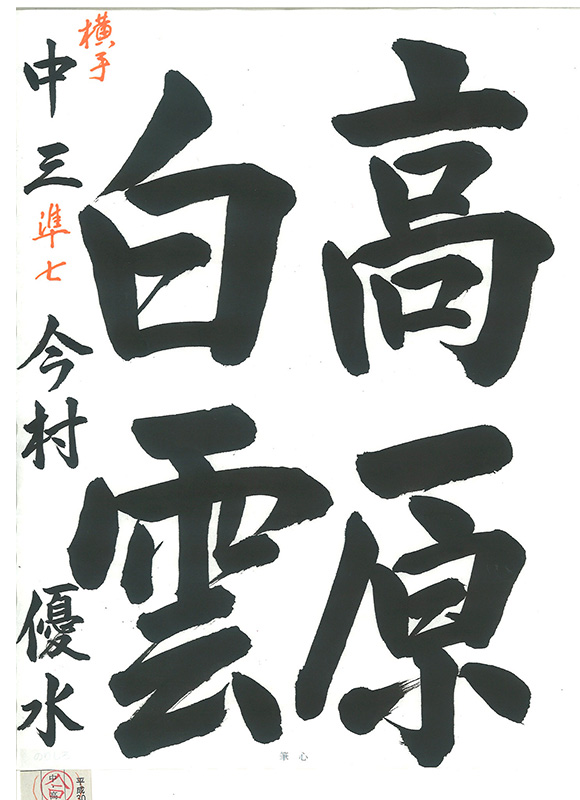 高原
白雲
横手
中三 準七 今村 優水
筆心
平成30